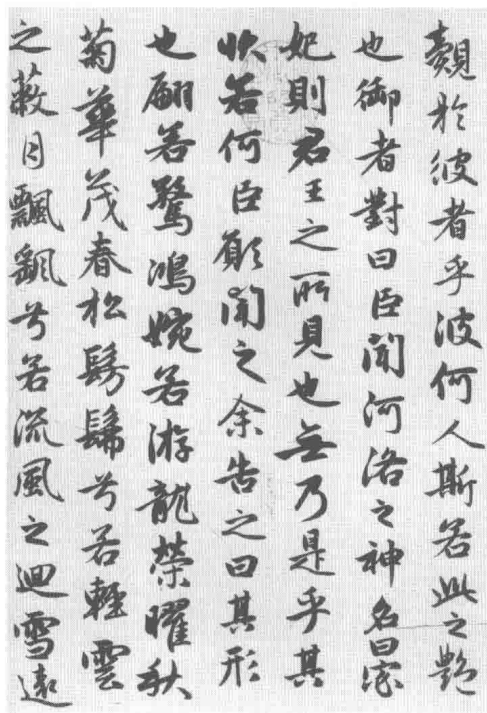 覿於彼者乎彼何人斯若此之艷
也御者對曰臣聞河洛之神名曰宓
妃則君王之所見也無乃是乎其
狀若何臣願聞之余告之曰其形
也翩若驚鴻婉若游龍榮曜秋
菊華茂春松髣髴兮若輕雲
之蔽月飄飖兮若流風之迴雪遠